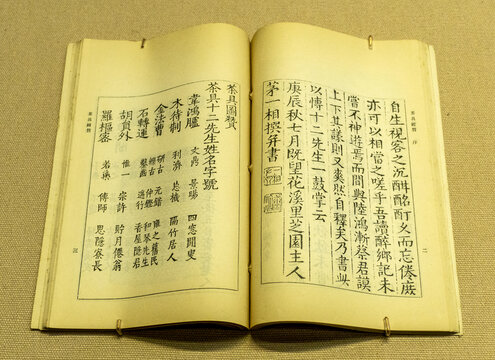 自生視客之沉酣酩酊又而忘倦庶
亦可以相當之嗟乎吾讀醉鄉記未
嘗不神遊焉而間與陸鴻漸蔡君謨
上下其議則又爽然自釋矣乃書與
以博十二先生一鼓掌云
庚辰秋七月既望花溪里芝園主人
茅一相撰并書
茶具圖贊 序
二
茶具圖贊
茶具十二先生姓名字號
韋鴻臚 文鼎 景暘 四窓閒叟
木待制 利濟 忘機 隔竹居人
金法曹 研古 元鍇 雍之舊民
轢古 仲鏗 和琴先生
石轉運 鑿齒 遄行 香屋隱君
胡員外 惟一 宗許 貯月僊翁
羅樞密 若藥 傳師 思隱寮長
茶具圖贊